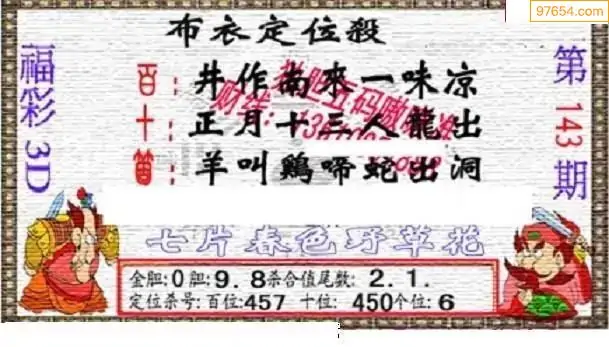 97654.com
布衣定位殺
福彩3D
第143期
百：井作南來一味凉
十：正月十三人龍出
箇：羊叫鷄啼蛇出洞
七片春色野草花
金胆:0胆:9.8杀合值尾数:2.1.
定位杀号:百位:457 十位:450个位:6